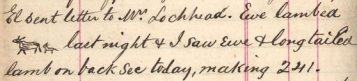 El sent letter to Mrs Lochhead. Ewe lambed
last night & I saw ewe & long tailed
lamb on back Sec today, making 241.